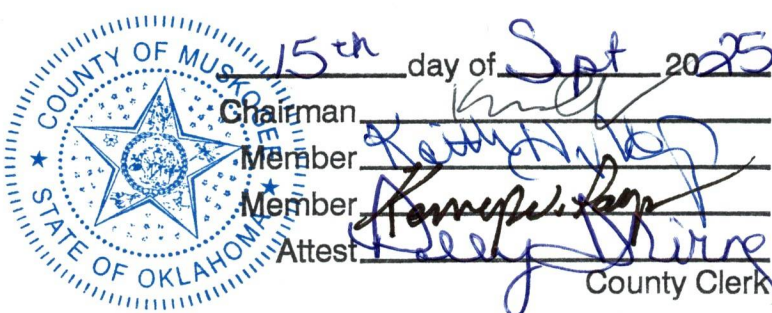 COUNTY OF MUSKOGEE
STATE OF OKLAHOMA
15th day of Sept 2025
Chairman
Member Keith Hyslop
Member
Attest Kelly
County Clerk